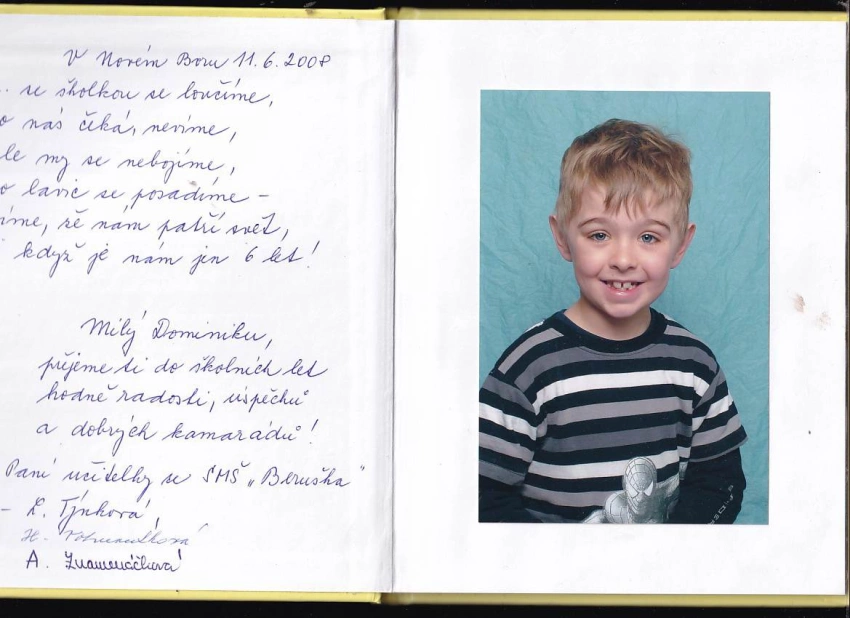 V Novém Boru 11.6.2008
. se školkou se loučíme,
o nás čeká, nevíme,
le my se nebojíme,
o lavic se posadíme –
íme, že nám patří svět,
když je nám jen 6 let!
Milý Dominiku,
přejeme ti do školních let
hodně radosti, úspěchů
a dobrých kamarádů!
Paní učitelky se SMŠ „Beruška"
– L. Týnková,
H.
A. Znamenáčková